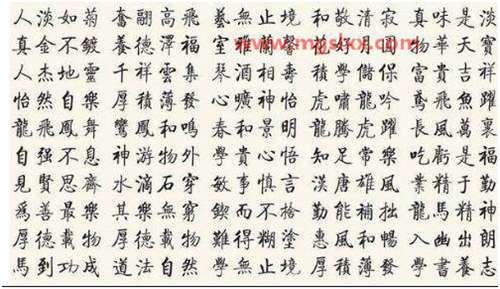 人淡如菊 奮翮高飛 藝無止境 和敬清寂 真味是淡
真金不鍍 養德澤福 室雅蘭馨 花好月圓 物華天寶
人杰地靈 千祥雲集 琴酒 壽 學儲 富貴吉祥
怡然自樂 厚積薄發 心曠神怡 虎嘯龍吟 鳶飛魚躍
龍飛鳳舞 鸞鳳和鳴 春和景明 龍騰虎躍 長風萬裏
自强不息 神游物外 學貴心悟 知足常樂 吃虧是福
見賢思齊 水滴石穿 敏事慎言 漢唐雄風 業精于勤
爲善最樂 其樂無窮 鍥而不捨 勤能補拙 龍馬精神
厚德載物 厚德載物 難得糊塗 惠風和暢 入幽出朗
馬到功成 道法自然 學無止境 厚積薄發 學書養志